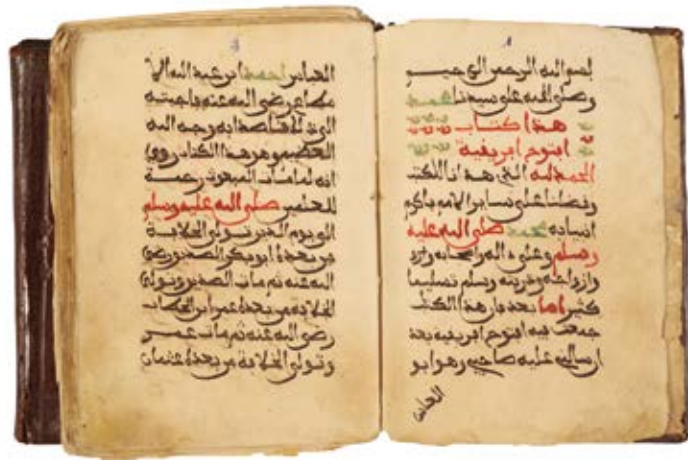 بسم الله الرحمن الرحيم
وصلى الله على سيدنا محمد
هذا كتاب
افتوح افريقية
الحمد لله الذي هدانا للكتب
وفضلنا على ساير الامم باكرم
انبيائه محمد صلى الله عليه
وسلم وعلى ءاله واصحابه
وازواجه وذريته وسلم تسليما
كثيرا اما بعد فان هذا الكتب
جمعت فيه افتوح افريقية بعد
ان سالني عليه صاحبي وهو ابو
العباس احمد ابن عبد الله
رضي الله عنه فاجبته
الى ذلك قاصدا به وجه الله
العظيم وهو هذا الكتاب روي
انه لما مات المبعوث رحمة
للعلمين صلى الله عليه وسلم
تولى الخلافة
من بعده ابو بكر الصديق رضي
الله عنه ثم مات الصديق وتولى
الخلافة من بعده عمر ابن الخطاب
رضي الله عنه ثم مات عمر
وتولى الخلافة من بعده عثمان